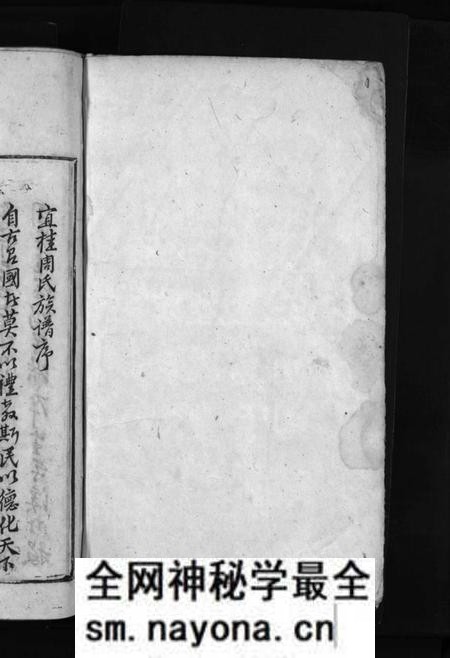 宜桂周氏族谱序
自古君國者莫不以禮教斯民以德化天下
全网神秘学最全
sm.nayona.cn